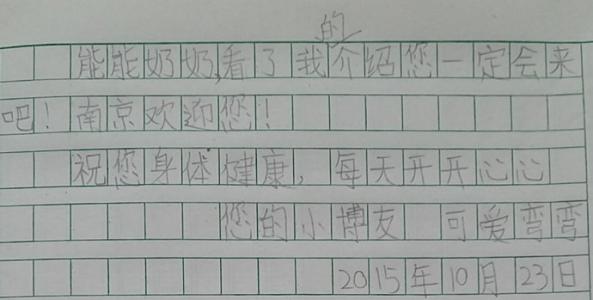 能能奶奶,看了我的介绍您一定会来
吧！南京欢迎您！
祝您身体健康，每天开开心心
您的小博友 可爱弯弯
2015年10月23日